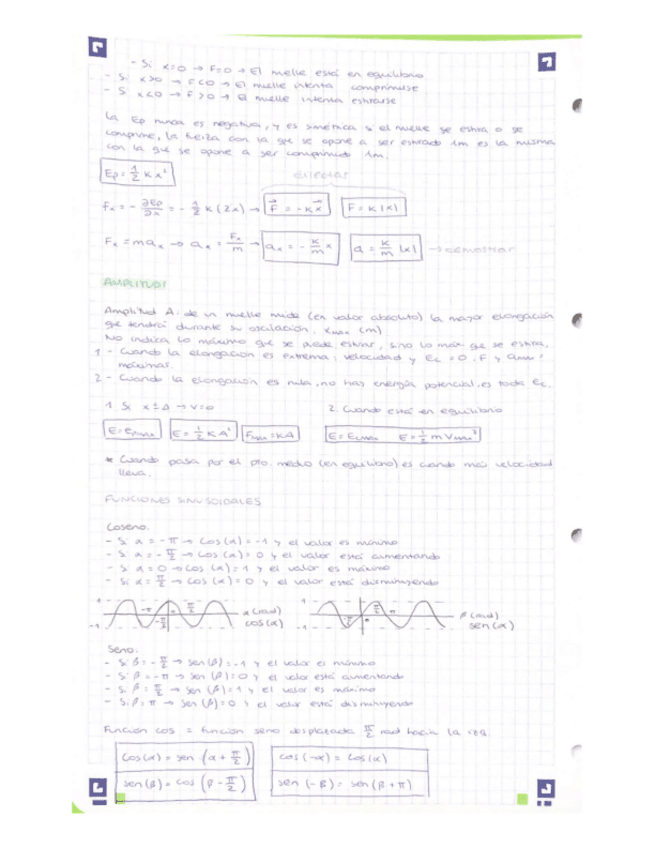 - Si x=0 → F=0 → El muelle está en equilibrio
- Si x>0 → F<0 → El muelle intenta comprimirse
- Si x<0 → F>0 → El muelle intenta estirarse
La Ep nunca es negativa, y es simétrica si el muelle se estira o se
comprime, la fuerza con la que se opone a ser estirado 1m es la misma
con la que se opone a ser comprimido 1m.
Ep = 1/2 K x²
Fx = - ∂Ep/∂x = - 1/2 K (2x) → F⃗ = -K x⃗ F = K |x|
Fx = max → ax = Fx/m → ax = - K/m x a = K/m |x| → demostrar
AMPLITUD
Amplitud A: de un muelle mide (en valor absoluto) la mayor elongación
que tendrá durante su oscilación. xmax (m)
No indica lo máximo que se puede estirar, sino lo más que se estira.
1 - Cuando la elongación es extrema: velocidad y Ec = 0. F y amax
máximas.
2 - Cuando la elongación es nula, no hay energía potencial, es toda Ec.
1. Si x ± A → v=0 2. Cuando está en equilibrio
E = Epmax E = 1/2 K A² Fmax = KA E = Ecmax E = 1/2 m Vmax²
* Cuando pasa por el pto. medio (en equilibrio) es cuando más velocidad
lleva.
FUNCIONES SINUSOIDALES
Coseno:
- Si α = -π → cos(α) = -1 y el valor es mínimo
- Si α = - π/2 → cos(α) = 0 y el valor está aumentando
- Si α = 0 → cos(α) = 1 y el valor es máximo
- Si α = π/2 → cos(α) = 0 y el valor está disminuyendo
1 -π π/2 α (rad) 1 π/2 π β (rad)
-1 cos(α) -1 sen(α)
Seno:
- Si β = - π/2 → sen(β) = -1 y el valor es mínimo
- Si β = -π → sen(β) = 0 y el valor está aumentando
- Si β = π/2 → sen(β) = 1 y el valor es máximo
- Si β = π → sen(β) = 0 y el valor está disminuyendo
Función cos = función seno desplazada π/2 rad hacia la izq.
cos(α) = sen (α + π/2) cos(-α) = cos(α)
sen(β) = cos (β - π/2) sen(-β) = sen(β + π)